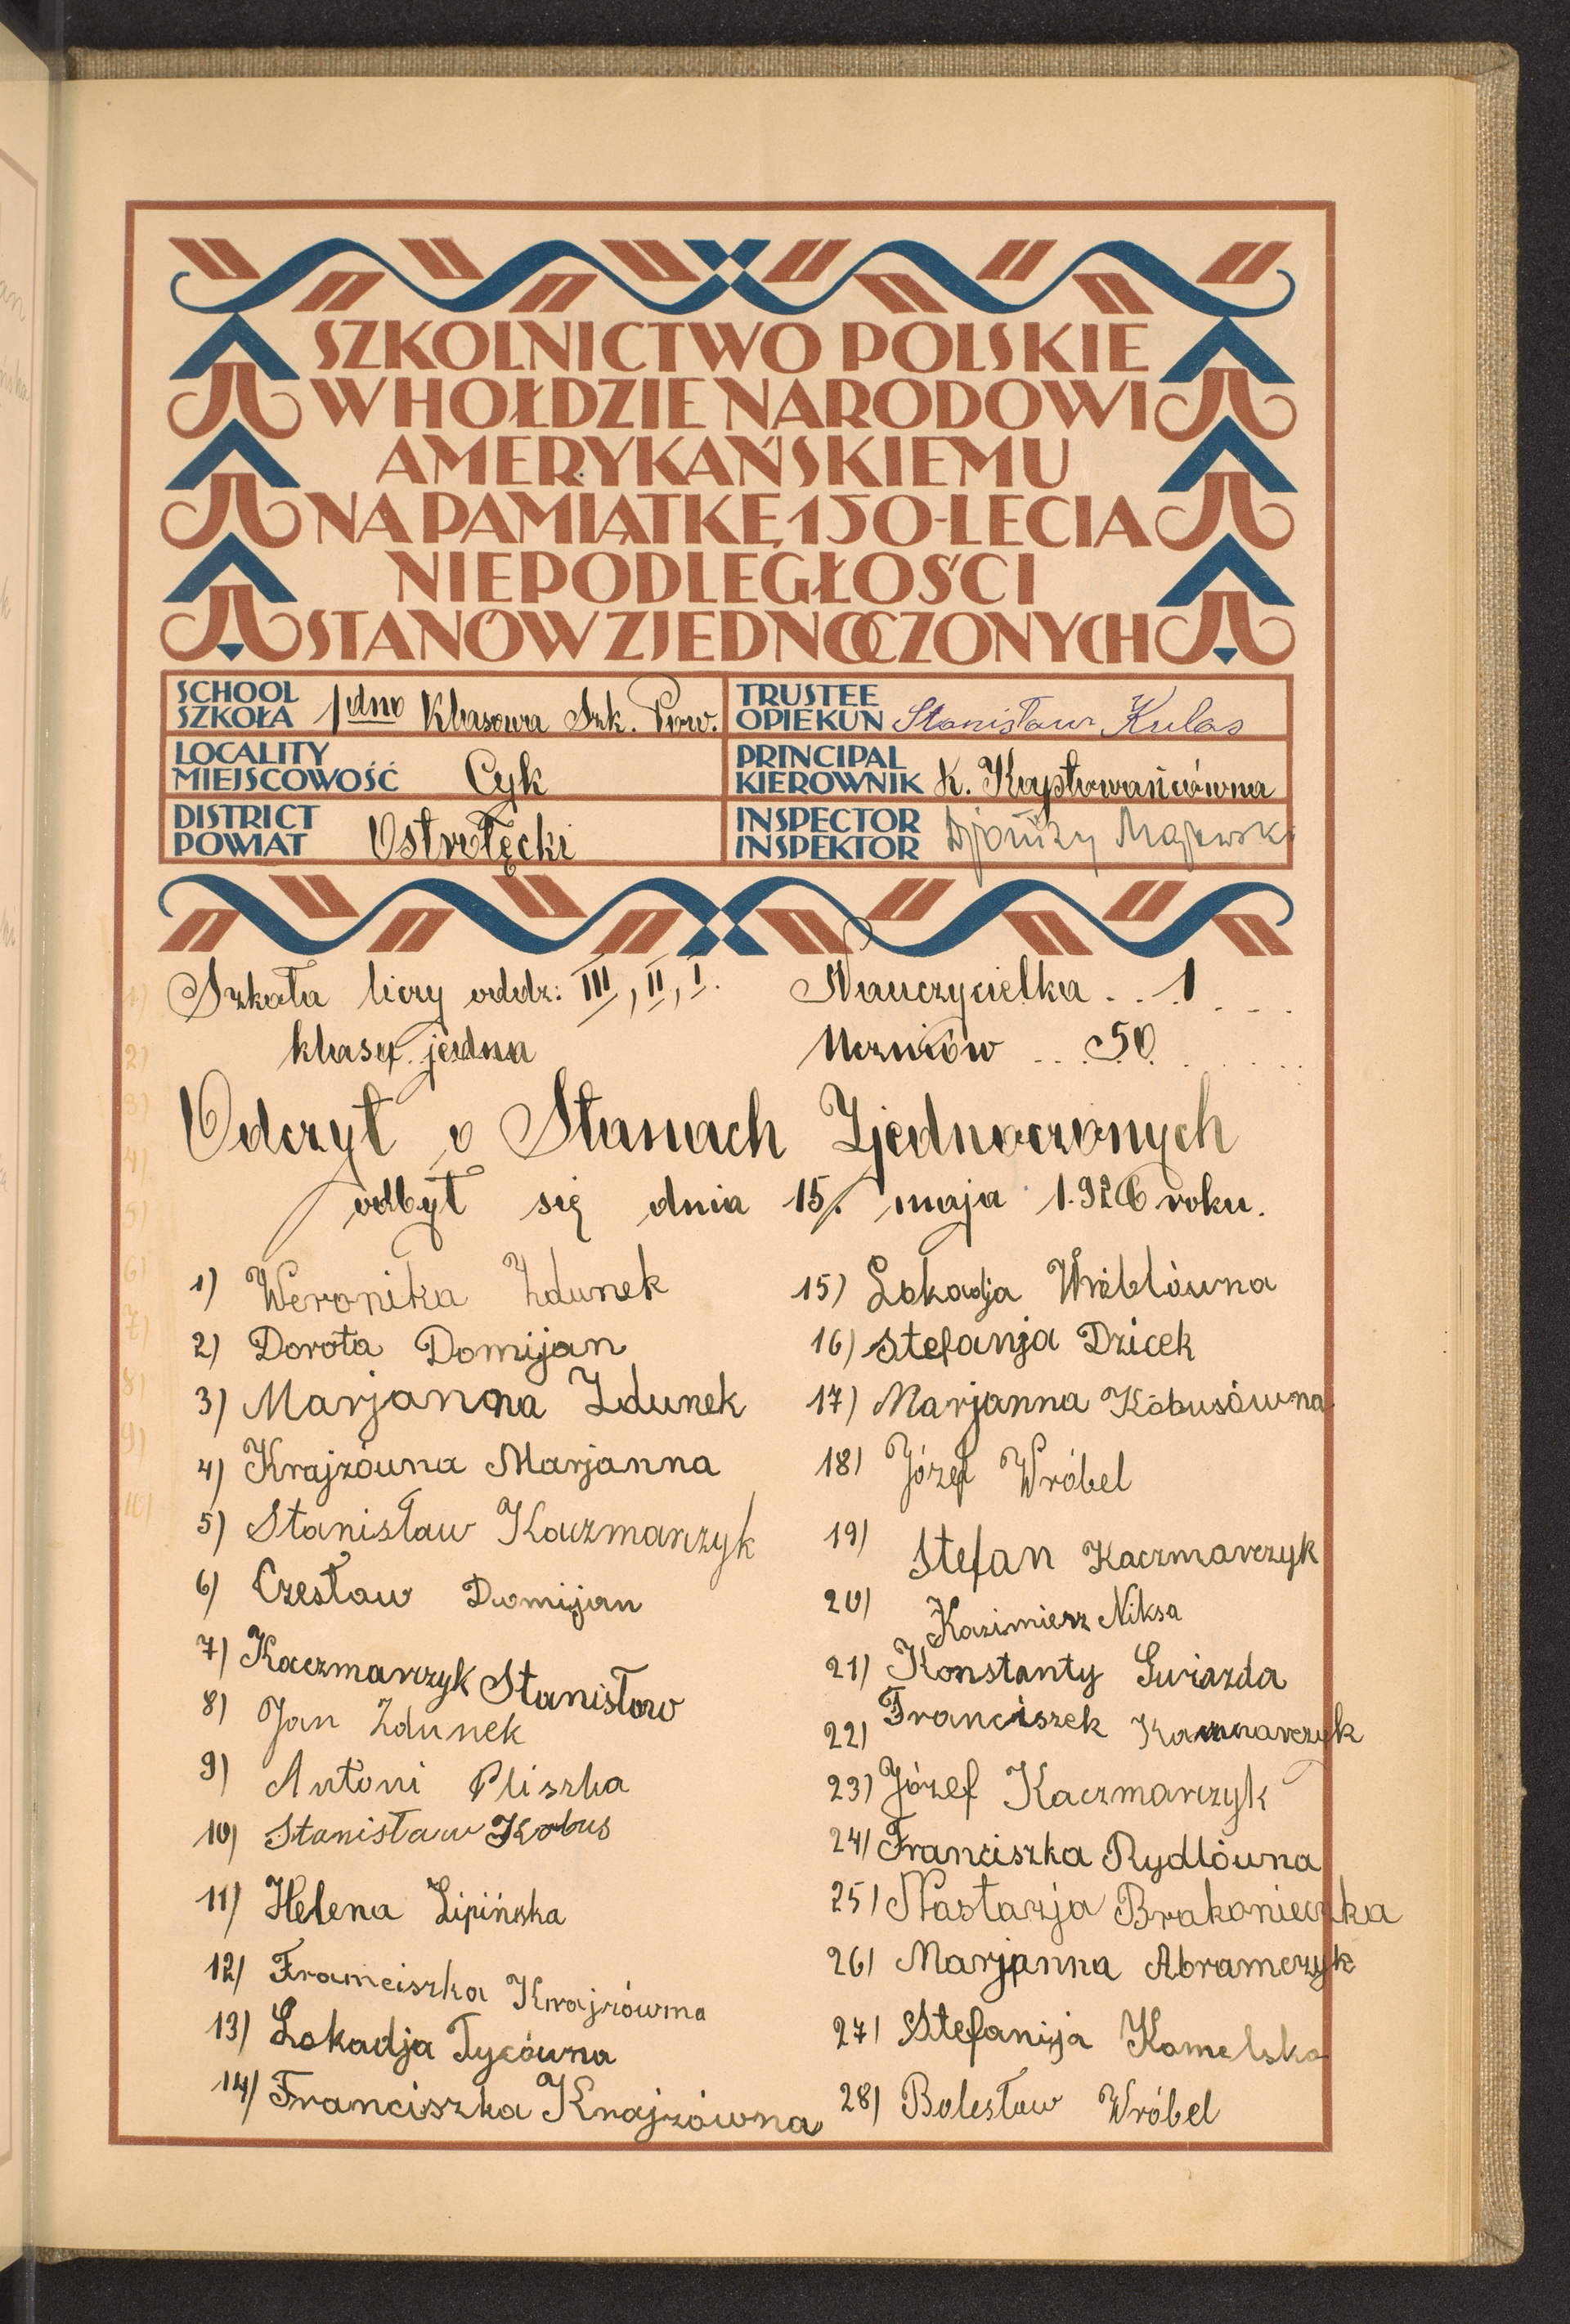 SZKOLNICTWO POLSKIE
W HOŁDZIE NARODOWI
AMERYKAŃSKIEMU
NA PAMIĄTKĘ 150-LECIA
NIEPODLEGŁOŚCI
STANÓW ZJEDNOCZONYCH
SCHOOL
SZKOŁA 1dno Klasowa Szk. Pow.
TRUSTEE
OPIEKUN Stanisław Kulas
LOCALITY
MIEJSCOWOŚĆ Cyk
PRINCIPAL
KIEROWNIK K. Kapłowańcówna
DISTRICT
POWIAT Ostrołęcki
INSPECTOR
INSPEKTOR Djonizy Majewski
Szkoła liczy oddz: III, II, I. Nauczycielka . . 1
klasę jedna Uczniów . . . 50
Odczyt o Stanach Zjednoczonych
odbył się dnia 15. maja 1.926 roku.
1) Weronika Zdunek
2) Dorota Domijan
3) Marjanna Zdunek
4) Krajzówna Marjanna
5) Stanisław Kaczmarzyk
6) Czesław Domijan
7) Kaczmarczyk Stanisław
8) Jan Zdunek
9) Antoni Pliszka
10) Stanisław Kobus
11) Helena Lipińska
12) Franciszka Krajzówna
13) Lokadja Tycówna
14) Franciszka Krajzówna
15) Lokadja Wróblówna
16) Stefanja Dzicek
17) Marjanna Kobusówna
18) Józef Wróbel
19) Stefan Kaczmarczyk
20) Kazimierz Niksa
21) Konstanty Gwiazda
22) Franciszek Kaczmarczyk
23) Józef Kaczmarczyk
24) Franciszka Rydlówna
25) Nastazja Brakonieczka
26) Marjanna Abramczyk
27) Stefanija Komelska
28) Bolesław Wróbel